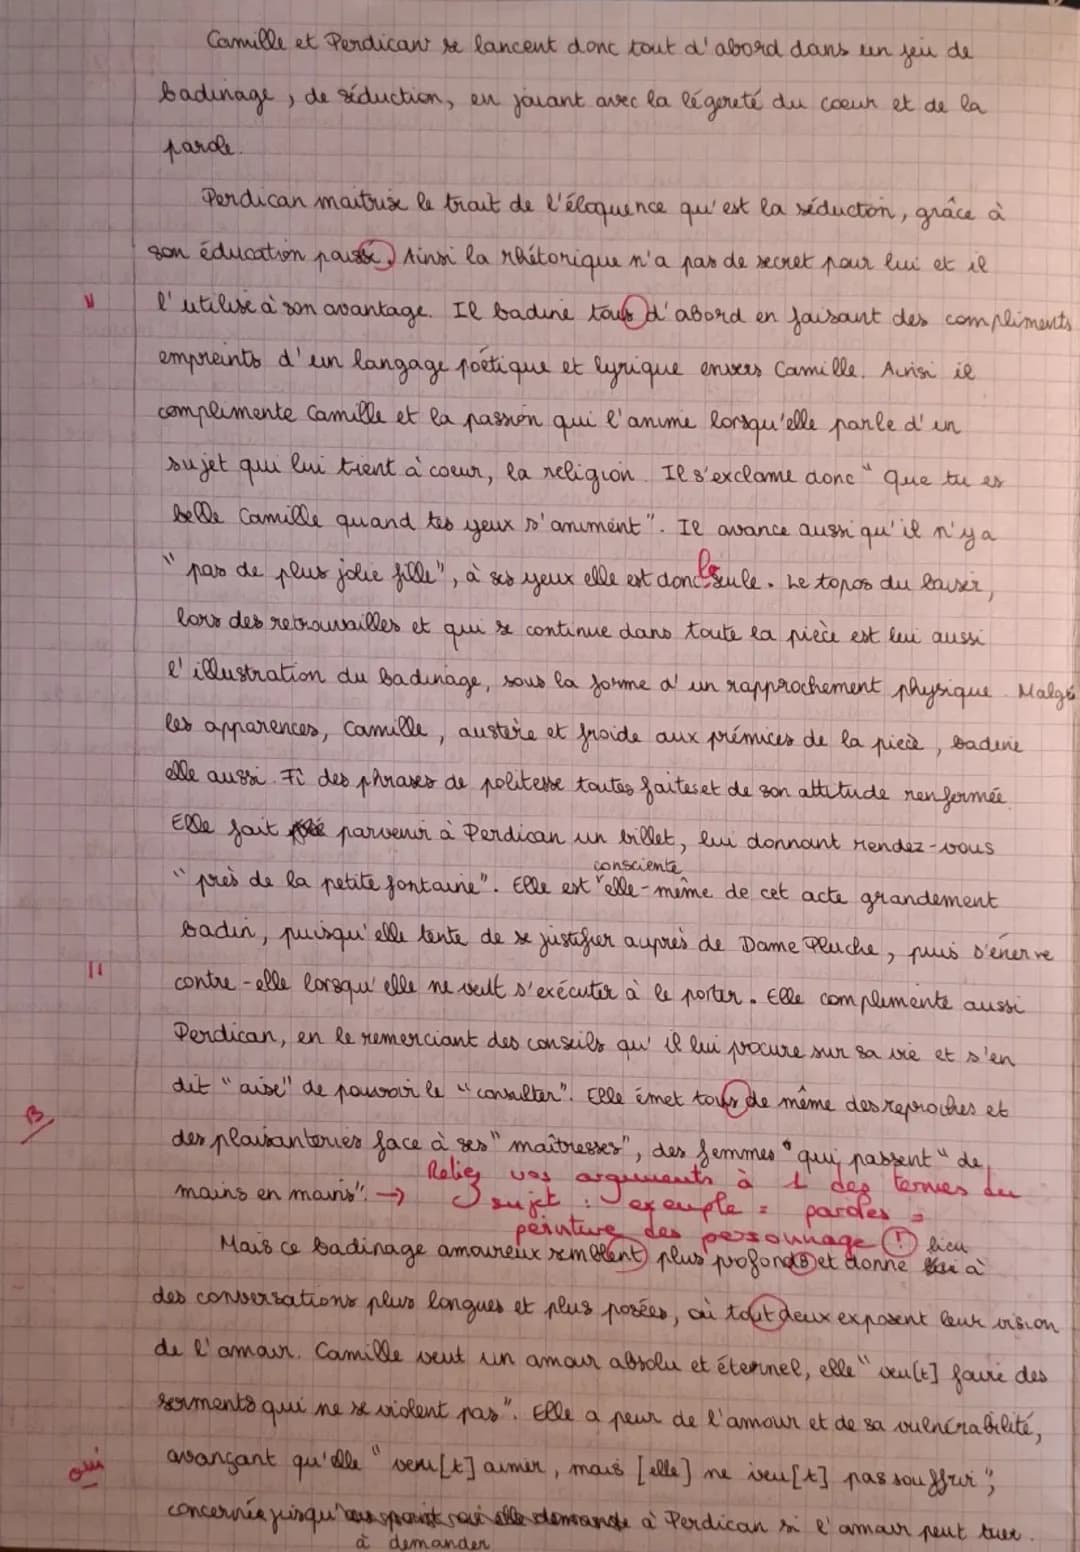 Camille et Perdican se lancent donc tout d'abord dans un jeu de
badinage, de séduction, en jouant avec la légereté du coeur et de la
parole.
Perdican maitrise le trait de l'éloquence qu'est la séduction, grâce à
son éducation Ainsi la rhétorique n'a pas de secret pour lui et il
V l'utilise à son avantage. Il badine tous d'abord en faisant des compliments
empreints d'un langage poétique et lyrique envers Camille. Ainsi il
complimente Camille et la passion qui l'anime lorsqu'elle parle d'un
sujet qui lui tient à coeur, la religion. Il s'exclame donc "Que tu es
belle Camille quand tes yeux s'animent". Il avance aussi qu'il n'y a
"pas de plus jolie fille", à ses yeux elle est donc la seule. Le topos du baiser,
lors des retrouvailles et qui se continue dans toute la pièce est lui aussi
l'illustration du badinage, sous la forme d'un rapprochement physique. Malgé
les apparences, Camille, austère et froide aux prémices de la pièce, badine
elle aussi. Fi des phrases de politesse toutes faites et de son attitude renfermée.
Elle fait parvenir à Perdican un billet, lui donnant rendez-vous
consciente
"près de la petite fontaine". Elle est elle-même de cet acte grandement
badin, puisqu'elle tente de se justifier auprès de Dame Pluche, puis s'énerve
11 contre-elle lorsqu'elle ne veut s'exécuter à le porter. Elle complimente aussi
Perdican, en le remerciant des conseils qu'il lui procure sur sa vie et s'en
dit "aise" de pouvoir le "consulter". Elle émet tous de même des reproches et
B des plaisanteries face à ses "maîtresses", des femmes "qui passent "de
mains en mains". → Reliez vos arguments à 1 des termes du
sujet : exemple = paroles =
peinture des personnage (!)
Mais ce badinage amoureux semblent plus profonds et donne lieu à
des conversations plus longues et plus posées, où tout deux exposent leur vision
de l'amour. Camille veut un amour absolu et éternel, elle "veu[t] faire des
serments qui ne se violent pas". Elle a peur de l'amour et de sa vulnérabilité,
oui avançant qu'elle "veu[t] aimer, mais [elle] ne veu[t] pas souffrir";
concernée jusqu' à Perdican si l'amour peut tuer.
à demander